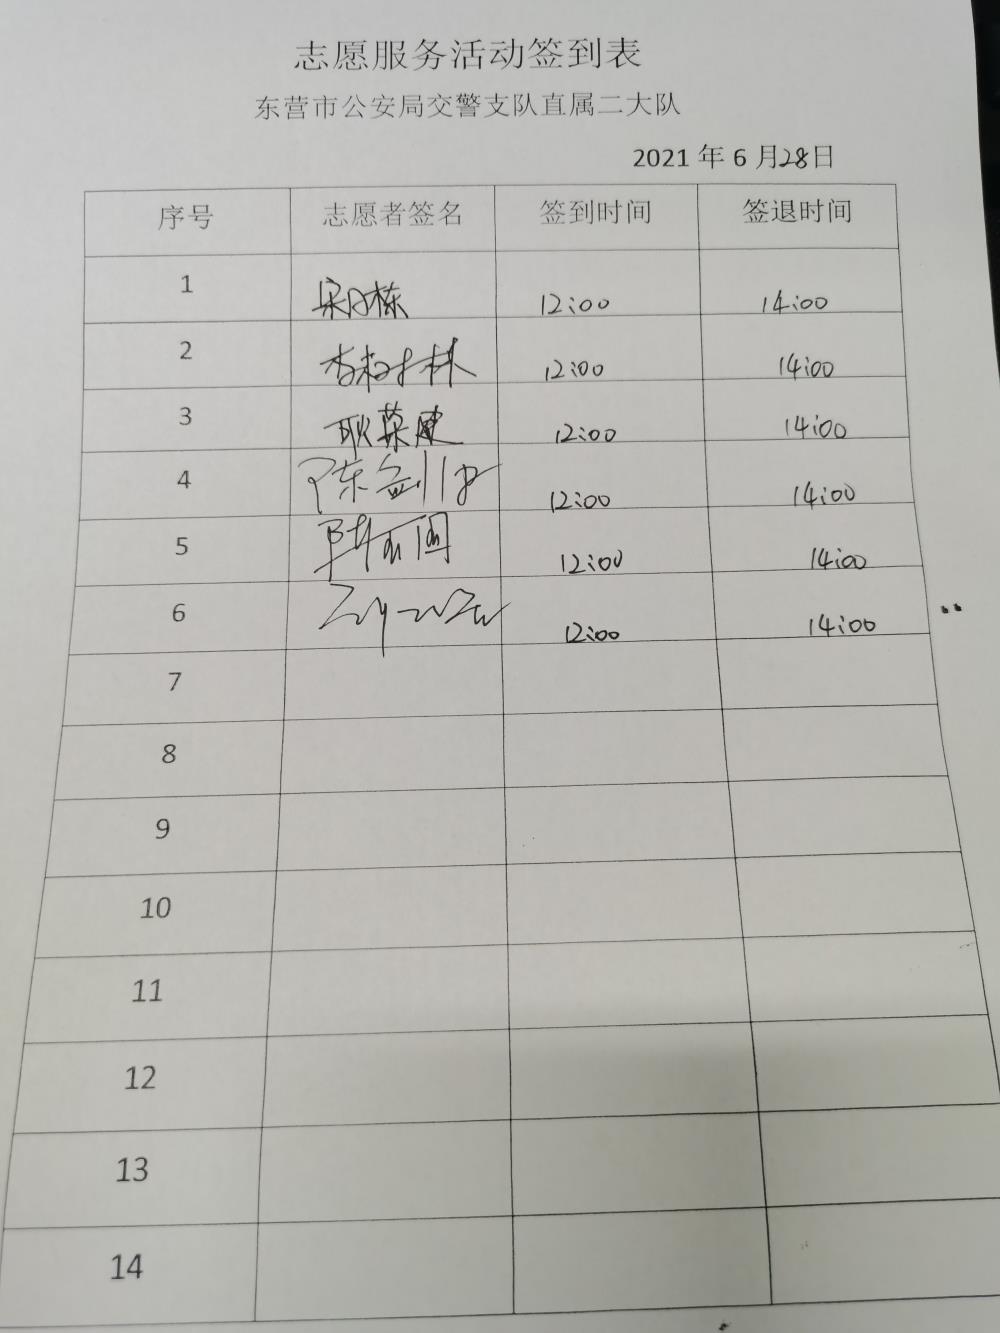 志愿服务活动签到表
东营市公安局交警支队直属二大队
2021 年 6 月28日
序号 志愿者签名 签到时间 签退时间
1 12:00 14:00
2 林 12:00 14:00
3 耿荣建 12:00 14:00
4 陈剑 12:00 14:00
5 12:00 14:00
6 12:00 14:00
7
8
9
10
11
12
13
14